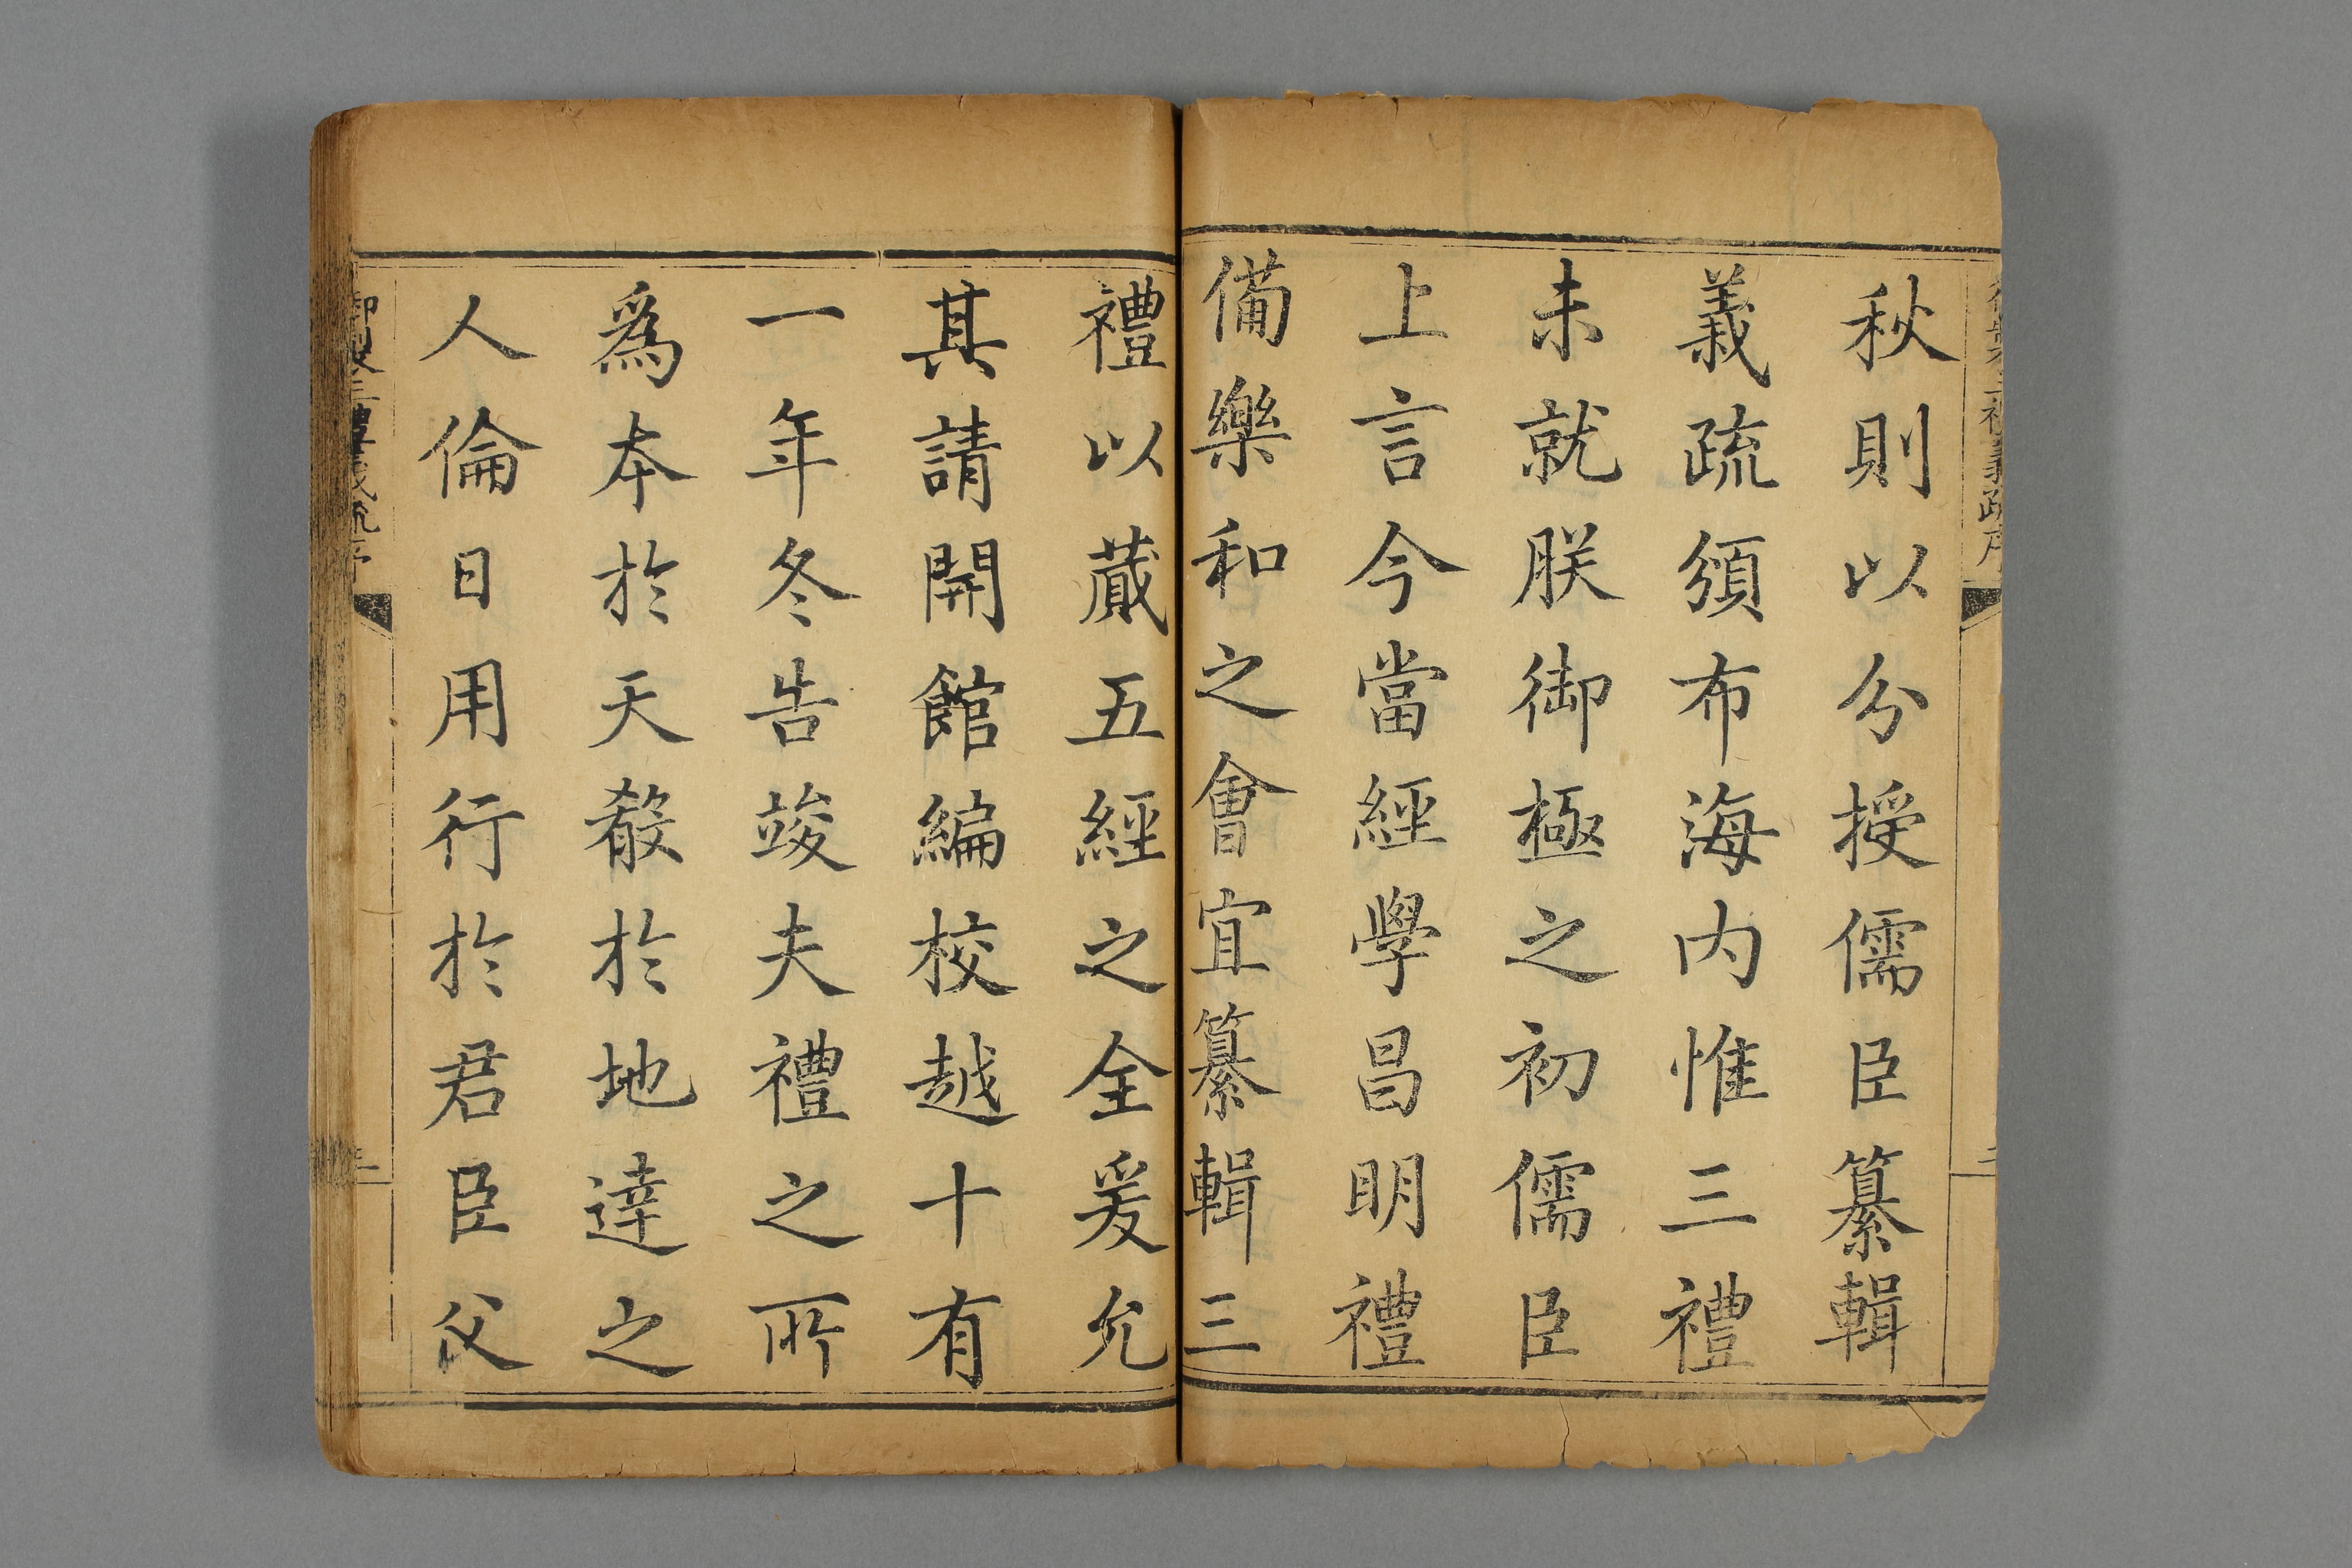 秋則以分授儒臣纂輯
義疏頒布海內惟三禮
未就朕御極之初儒臣
上言今當經學昌明禮
備樂和之會宜纂輯三
禮以蔵五經之全爰允
其請開館編校越十有
一年冬告竣夫禮之所
爲本於天殽於地達之
人倫日用行於君臣父